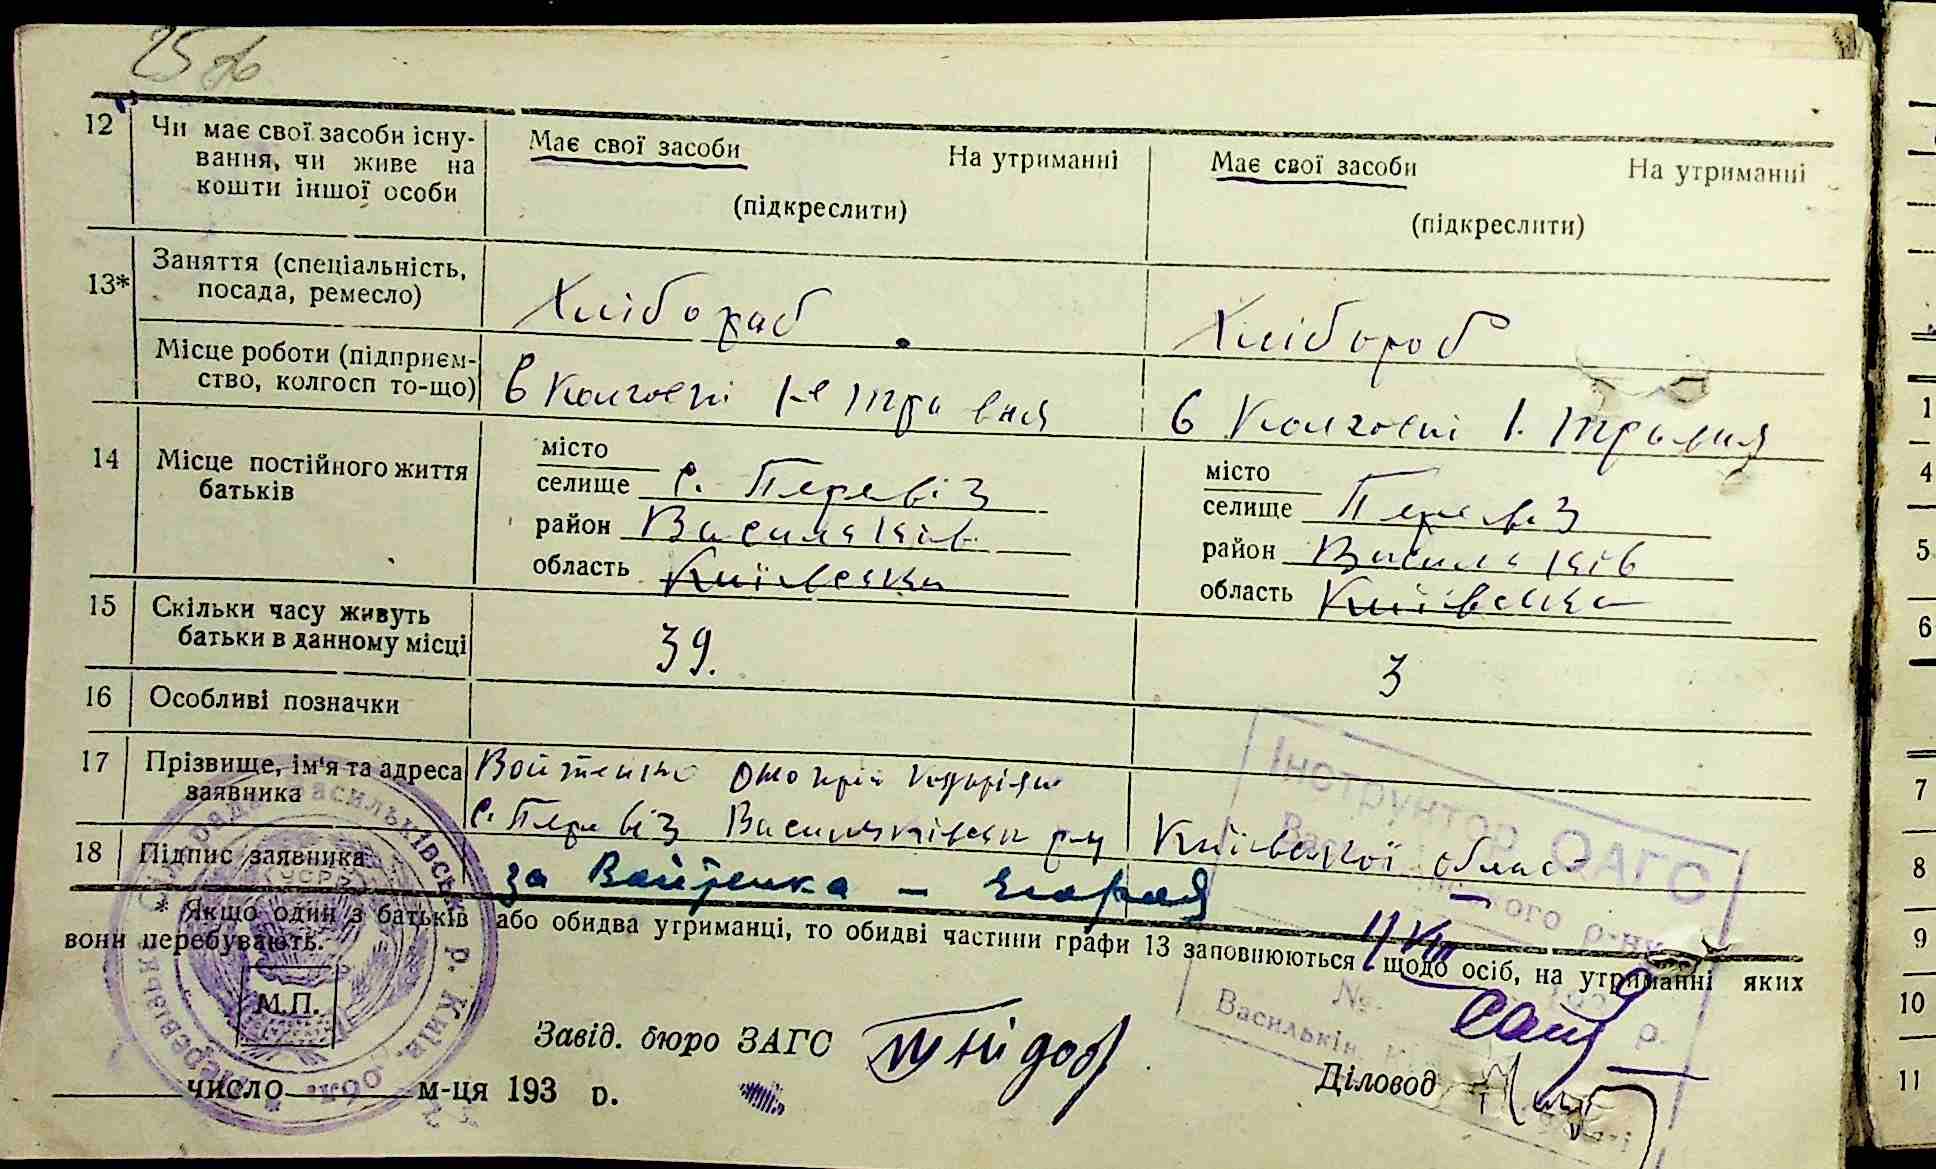 25 зв
12 Чи має свої засоби існу- Має свої засоби На утриманні Має свої засоби На утриманні
вання, чи живе на
кошти іншої особи (підкреслити) (підкреслити)
13* Заняття (спеціальність, Хлібораб Хлібороб
посада, ремесло)
Місце роботи (підприєм- в колгоспі 1е травня в колгоспі 1. травня
ство, колгосп то-що)
14 Місце постійного життя місто місто
батьків селище с. Перевіз селище Перевіз
район Васильків район Васильків
область Київська область Київська
15 Скільки часу живуть 39. 3
батьки в данному місці
16 Особливі позначки
17 Прізвище, ім'я та адреса Войтенко
заявника с. Перевіз Васильківськ р-у Київської област
18 Підпис заявника за Войтенка –
* Якщо один з батьків або обидва утриманці, то обидві частини графи 13 заповнюються щодо осіб, на утриманні яких
вони перебувають.
М.П.
Завід. бюро ЗАГС
Діловод
число м-ця 193 р.
Інструктор ОАГС
ого р-ну
№
р.
Васильків